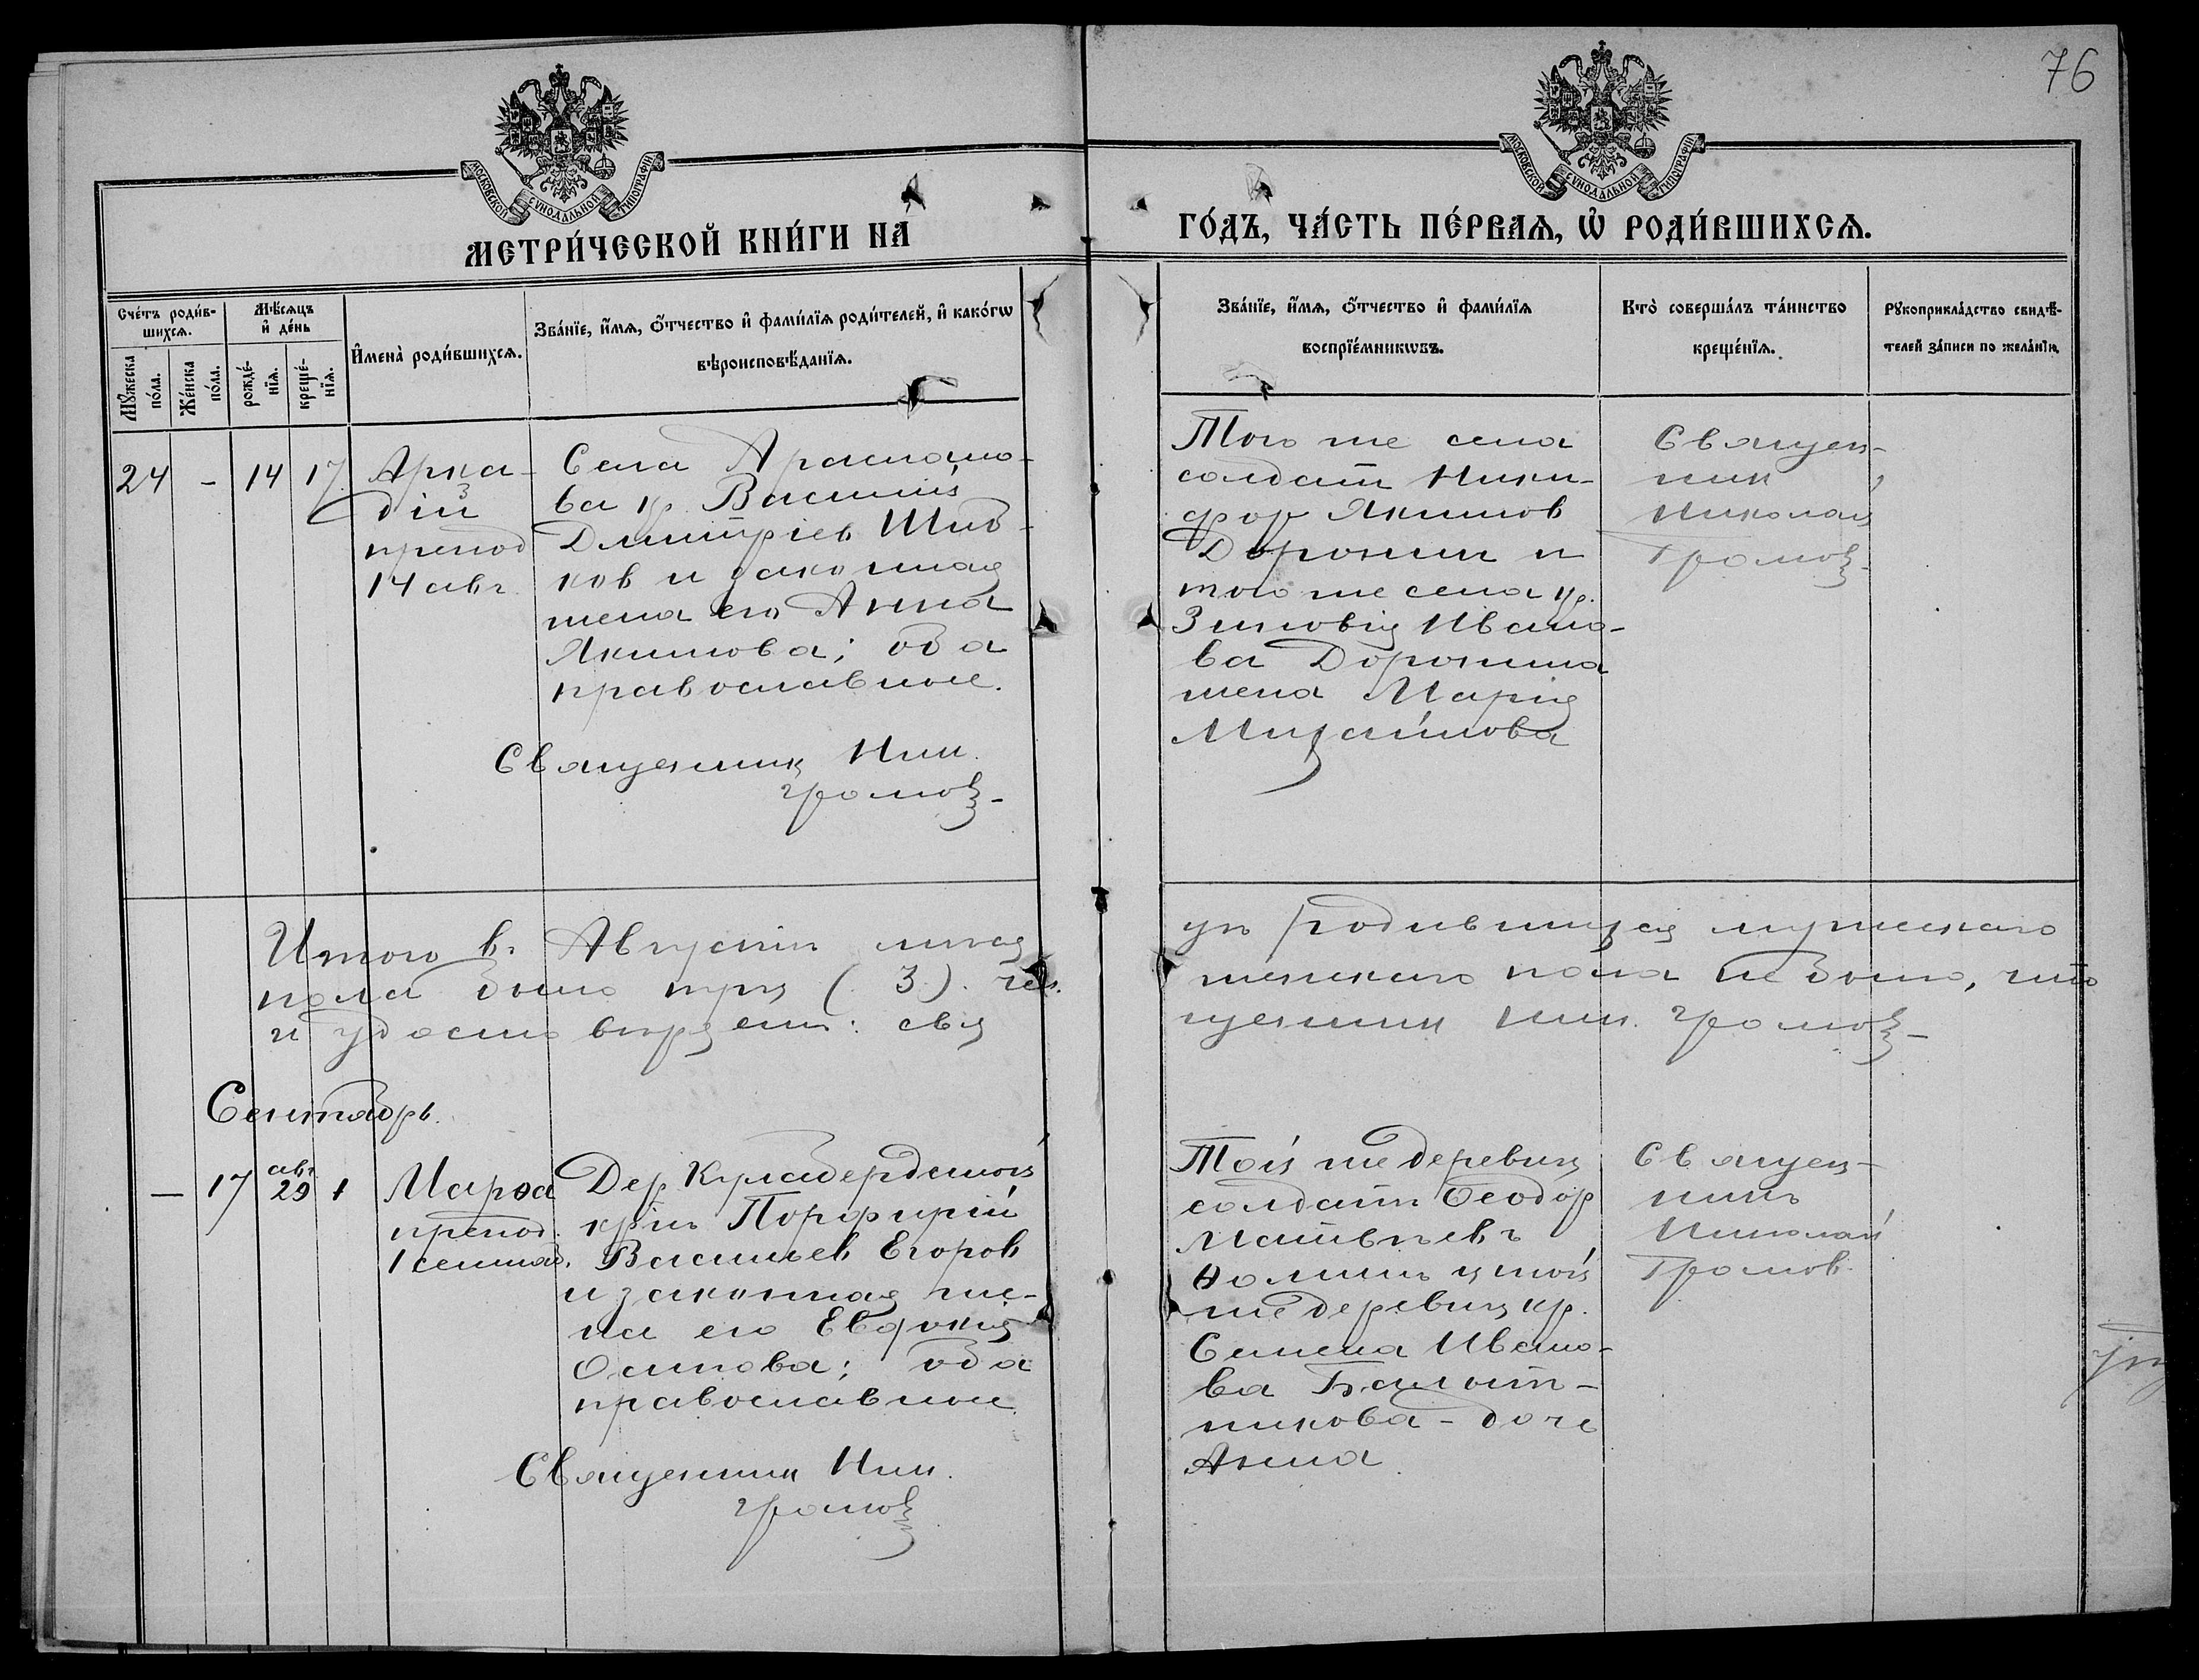 76
МОСКОВСКОЙ СѴНОДАЛЬНОЙ ТИПОГРАФІИ
МОСКОВСКОЙ СѴНОДАЛЬНОЙ ТИПОГРАФІИ
МЕТРИ́ЧЕСКОЙ КНИ́ГИ НА̀
ГО́ДЪ, ЧА́СТЬ ПЕ́РВАѦ, Ѡ҆ РОДИ́ВШИХСѦ.
Сче́тъ роди́в-
шихсѧ.
Мѣ́сѧцъ
и҆ де́нь
И҆мена̀ роди́вшихсѧ.
Зва́нїе, и҆́мѧ, ѻ҆́тчество и҆ фами́лїѧ роди́телей, и҆ како́гѡ
вѣроисповѣ́данїѧ.
Мꙋ́жеска
по́ла.
Же́нска
по́ла.
рожде́-
нїѧ.
креще́-
нїѧ.
Зва́нїе, и҆́мѧ, ѻ҆́тчество и҆ фами́лїѧ
воспрїе́мникѡвъ.
Кто̀ соверша́лъ та́инство
креще́нїѧ.
Рꙋкоприкла́дство свидѣ́-
телей за́писи по жела́нїю.
24 - 14 17
Арка-
дій
препод
14 авг.
Села
ва кр. Василій
Дмитріев Шиб-
ков и законная
жена его Анна
Якимова; оба
православные.
Священник Ник.
Громов
Того же села
солдат Ники-
фор Якимов
Доронин и
того же села кр.
Зиновія Ивано-
ва Доронина
жена Марія
Михаилова
Священ-
ник
Николай
Громов
Итого в Августѣ мѣся
пола было три (3). чел.
и удостовѣряем: свя
цѣ родившихся мужескаго
женскаго пола не было, что
щенник Ник. Громов
Сентябрь.
— 17 авг. 29 1
Марѳа
препод.
1 сентяб.
Дер. Кулабердиной
крѣ Порфирій
Васильев Егоров
и законная же-
на его Евдокія
Осипова; оба
православные
Священник Ник.
Громов
Той же деревни
солдатъ Ѳеодор
Матвѣевъ
Ѳоминъ и той
же деревни кр.
Семена Ивано-
ва
никова - дочь
Анна
Священ-
никъ
Николай
Громов.